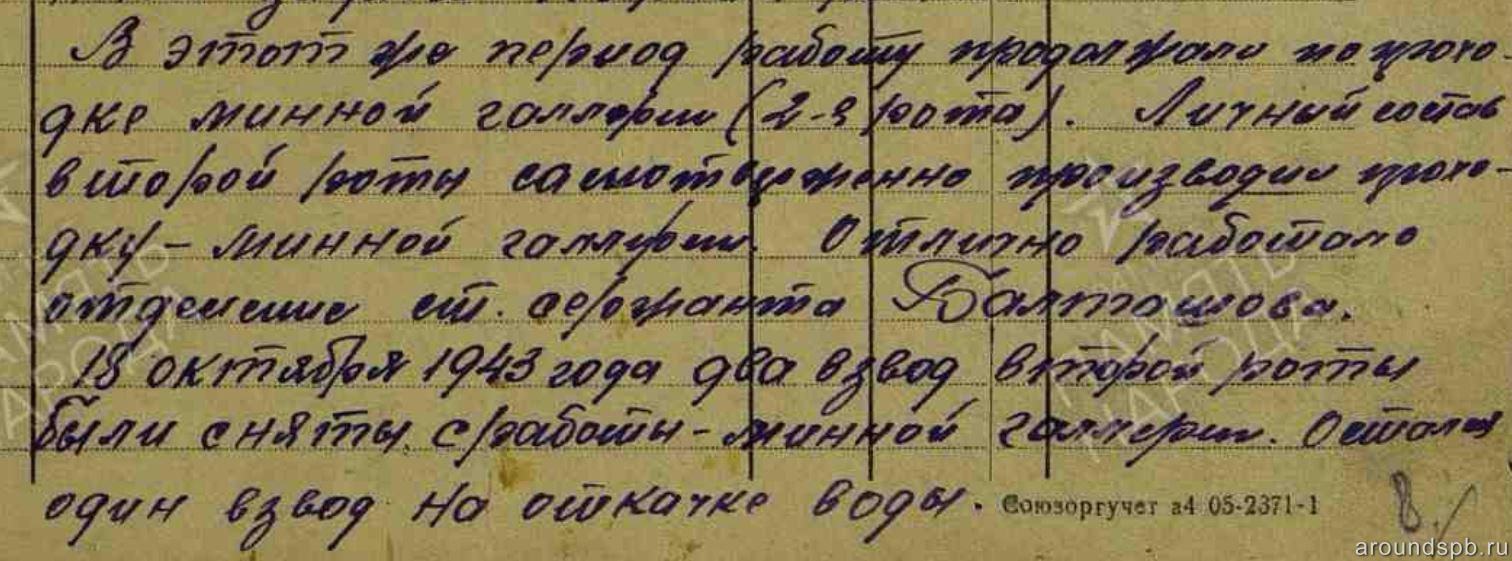 В этот же период работу продолжали по прохо-
дке минной галлереи (2-я рота). Личный состав
второй роты самоотверженно производил прохо-
дку - минной галлереи. Отлично работало
отделение ст. сержанта Балташова.
18 октября 1943 года два взвод второй роты
были сняты с работы - минной галлереи. Остался
один взвод на откачке воды. Союзоргучет з4 05-2371-1
8
ПАМЯТЬ
НАРОДА
aroundspb.ru